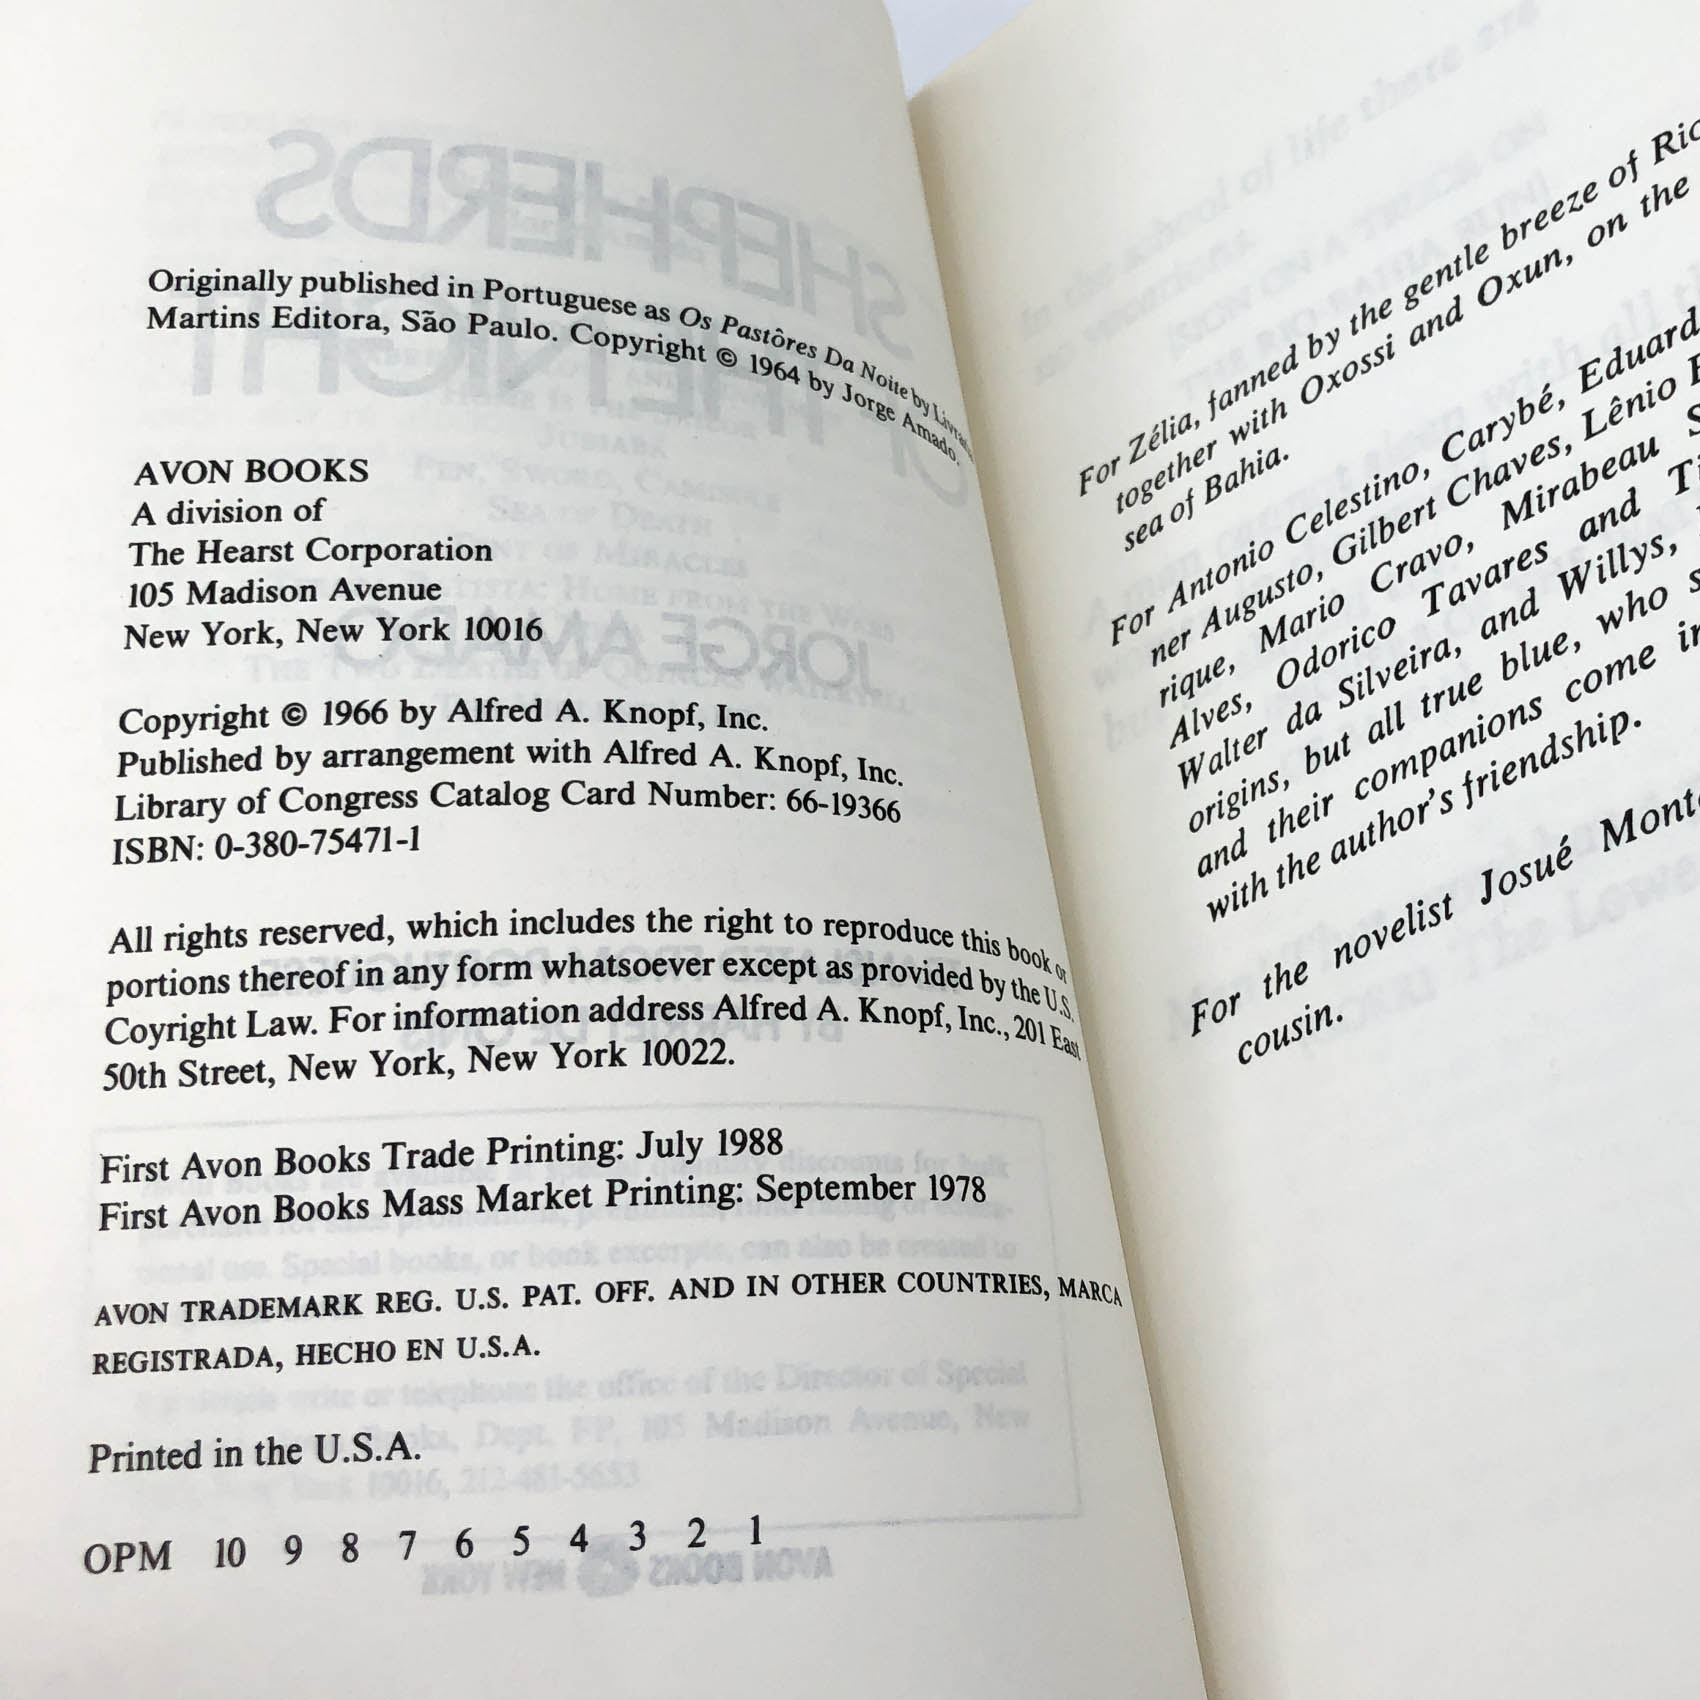 Originally published in Portuguese as Os Pastôres Da Noite by
Martins Editora, São Paulo. Copyright © 1964 by Jorge Amado.
AVON BOOKS
A division of
The Hearst Corporation
105 Madison Avenue
New York, New York 10016
Copyright © 1966 by Alfred A. Knopf, Inc.
Published by arrangement with Alfred A. Knopf, Inc.
Library of Congress Catalog Card Number: 66-19366
ISBN: 0-380-75471-1
All rights reserved, which includes the right to reproduce this book or
portions thereof in any form whatsoever except as provided by the U.S.
Coyright Law. For information address Alfred A. Knopf, Inc., 201 East
50th Street, New York, New York 10022.
First Avon Books Trade Printing: July 1988
First Avon Books Mass Market Printing: September 1978
AVON TRADEMARK REG. U.S. PAT. OFF. AND IN OTHER COUNTRIES, MARCA
REGISTRADA, HECHO EN U.S.A.
Printed in the U.S.A.
OPM 10 9 8 7 6 5 4 3 2 1
For Zélia, fanned by the gentle breeze of
together with Oxossi and Oxun, on the
sea of Bahia.
For Antonio Celestino, Carybé,
ner Augusto, Gilbert Chaves, Lênio
rique, Mario Cravo, Mirabeau
Alves, Odorico Tavares and
Walter da Silveira, and Willys,
origins, but all true blue, who
and their companions come
with the author's friendship.
For the novelist Josué
cousin.